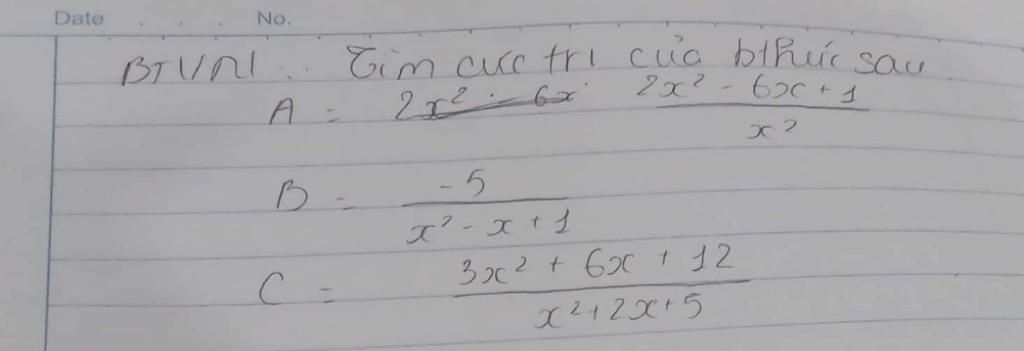 Date No.
BTVN Tìm cực trị của bthức sau
A = 2x² - 6x 2x² - 6x + 1 / x²
B = -5 / x² - x + 1
C = 3x² + 6x + 12 / x² + 2x + 5